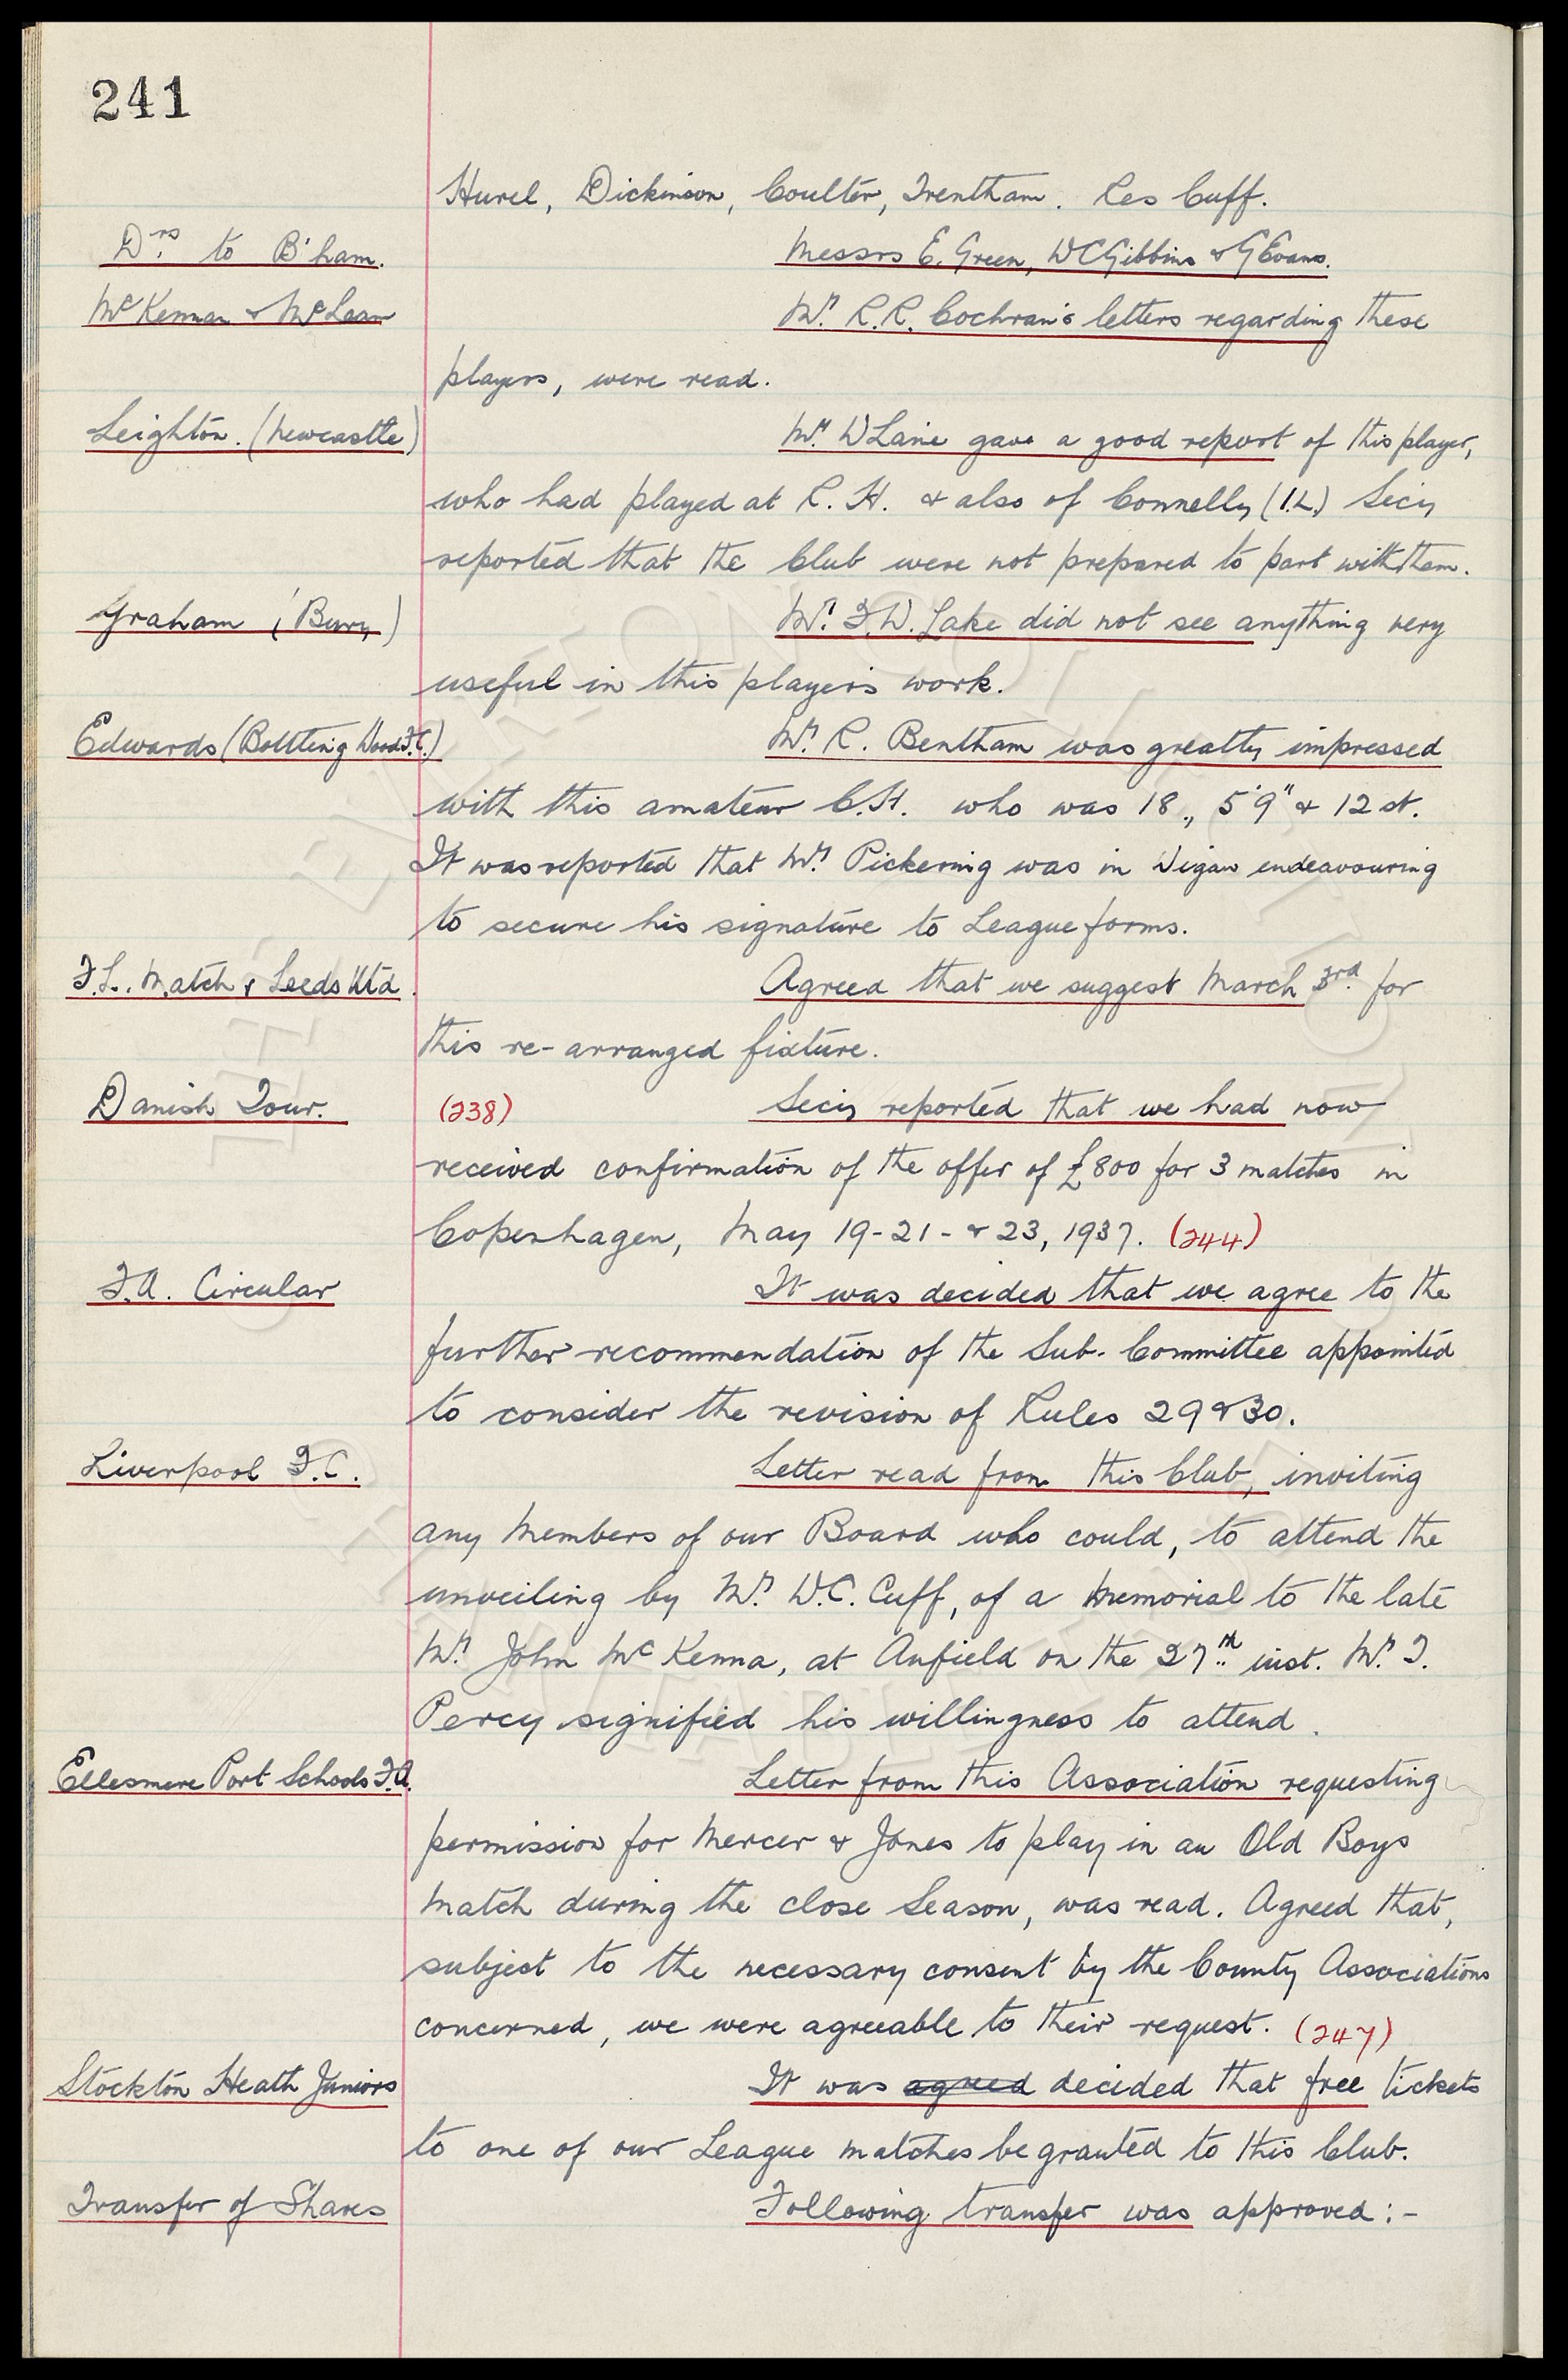 241
Hurel, Dickinson, Coulter, Trentham. Res Cuff.
Drs to B'ham. Messrs E. Green, W C Gibbins & G Evans.
McKennan & McLaren Mr. R.R. Cochran's letters regarding these
players, were read.
Leighton. (Newcastle) Mr. W Laine gave a good report of this player,
who had played at R. H. & also of Connelly (I.L.) Secy
reported that the Club were not prepared to part with them.
Graham (Bury) Mr. F.W. Lake did not see anything very
useful in this player's work.
Edwards (Bottling Wood F.C.) Mr. R. Bentham was greatly impressed
with this amateur C.H. who was 18, 5'9" & 12 st.
It was reported that Mr. Pickering was in Wigan endeavouring
to secure his signature to League forms.
F.L. Match v Leeds Utd. Agreed that we suggest March 3rd. for
this re-arranged fixture.
Danish Tour. (238) Secy reported that we had now
received confirmation of the offer of £800 for 3 matches in
Copenhagen, May 19-21- & 23, 1937. (244)
F.A. Circular It was decided that we agree to the
further recommendation of the Sub-Committee appointed
to consider the revision of Rules 29 & 30.
Liverpool F.C. Letter read from this Club, inviting
any Members of our Board who could, to attend the
unveiling by Mr. W.C. Cuff, of a Memorial to the late
Mr. John McKenna, at Anfield on the 27th inst. Mr. T.
Percy signified his willingness to attend.
Ellesmere Port Schools F.A. Letter from this Association requesting
permission for Mercer & Jones to play in an Old Boys
Match during the close Season, was read. Agreed that,
subject to the necessary consent by the County Associations
concerned, we were agreeable to their request. (247)
Stockton Heath Juniors It was agreed decided that free tickets
to one of our League matches be granted to this Club.
Transfer of Shares Following transfer was approved:-